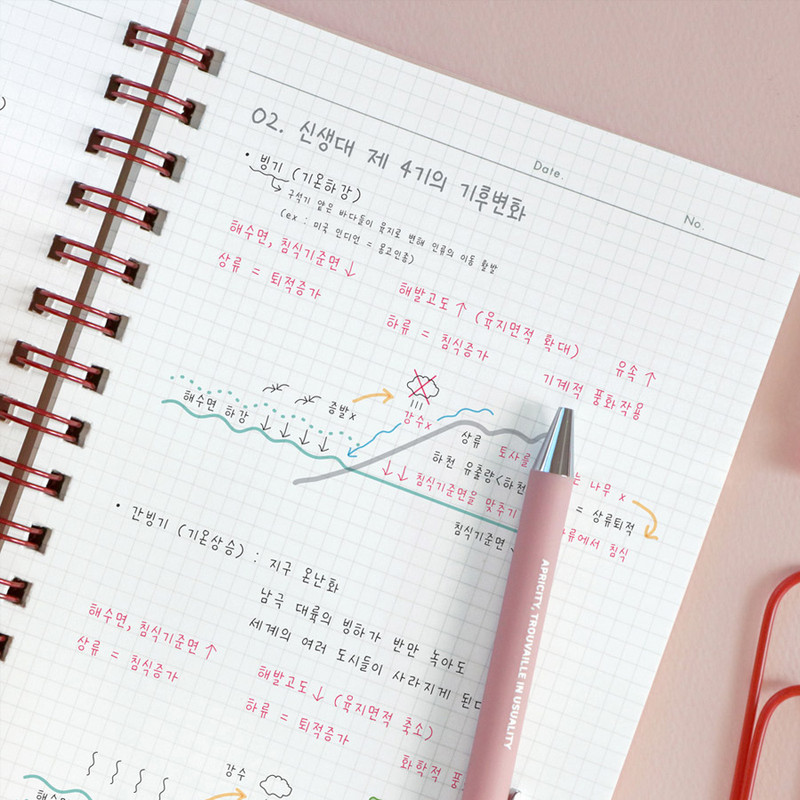 Date.
No.
02. 신생대 제 4기의 기후변화
• 빙기 (기온하강)
구석기 얕은 바다들이 육지로 변해 인류의 이동 활발
(ex : 미국 인디언 = 몽고인종)
해수면, 침식기준면 ↓
상류 = 퇴적증가
해발고도 ↑ (육지면적 확대)
하류 = 침식증가
유속 ↑
기계적 풍화작용
해수면 하강
증발x
강수x
상류 토사를
는 나무 x
하천 유출량<하천
= 상류퇴적
↓↓ 침식기준면을 맞추기
하류에서 침식
침식기준면
• 간빙기 (기온상승) : 지구 온난화
남극 대륙의 빙하가 반만 녹아도
세계의 여러 도시들이 사라지게 된다
해수면, 침식기준면 ↑
상류 = 침식증가
해발고도 ↓ (육지면적 축소)
하류 = 퇴적증가
화학적 풍
강수
해수면
APRICITY, TROUVAILLE IN USUALITY